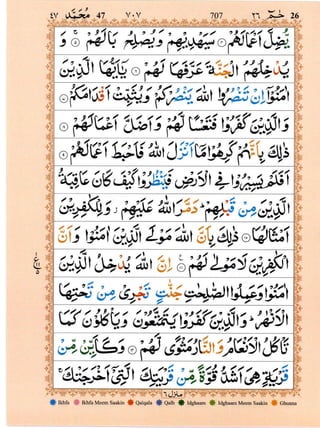 ٤٧ مُحَمَّد 47 ٧٠٧ 707 حٰمٓ ٢٦ 26
يُّضِلَّ اَعْمَالَهُمْ ۝٤ سَيَهْدِيْهِمْ وَيُصْلِحُ بَالَهُمْ ۝٥ وَ
يُدْخِلُهُمُ الْجَنَّةَ عَرَّفَهَا لَهُمْ ۝٦ يٰٓاَيُّهَا الَّذِيْنَ
اٰمَنُوْٓا اِنْ تَنْصُرُوا اللّٰهَ يَنْصُرْكُمْ وَيُثَبِّتْ اَقْدَامَكُمْ ۝٧
وَالَّذِيْنَ كَفَرُوْا فَتَعْسًا لَّهُمْ وَاَضَلَّ اَعْمَالَهُمْ ۝٨
ذٰلِكَ بِاَنَّهُمْ كَرِهُوْا مَآ اَنْزَلَ اللّٰهُ فَاَحْبَطَ اَعْمَالَهُمْ ۝٩
اَفَلَمْ يَسِيْرُوْا فِى الْاَرْضِ فَيَنْظُرُوْا كَيْفَ كَانَ عَاقِبَةُ
الَّذِيْنَ مِنْ قَبْلِهِمْ ؕ دَمَّرَ اللّٰهُ عَلَيْهِمْ ؗ وَلِلْكٰفِرِيْنَ
اَمْثَالُهَا ۝١٠ ذٰلِكَ بِاَنَّ اللّٰهَ مَوْلَى الَّذِيْنَ اٰمَنُوْا وَاَنَّ
الْكٰفِرِيْنَ لَا مَوْلٰى لَهُمْ ۝١١ اِنَّ اللّٰهَ يُدْخِلُ الَّذِيْنَ
اٰمَنُوْا وَعَمِلُوا الصّٰلِحٰتِ جَنّٰتٍ تَجْرِىْ مِنْ تَحْتِهَا
الْاَنْهٰرُ ؕ وَالَّذِيْنَ كَفَرُوْا يَتَمَتَّعُوْنَ وَيَاْكُلُوْنَ كَمَا
تَاْكُلُ الْاَنْعَامُ وَالنَّارُ مَثْوًى لَّهُمْ ۝١٢ وَكَاَيِّنْ مِّنْ
قَرْيَةٍ هِىَ اَشَدُّ قُوَّةً مِّنْ قَرْيَتِكَ الَّتِىْٓ اَخْرَجَتْكَ ۚ
منزل ٦
Ikhfa Ikhfa Meem Saakin Qalqala Qalb Idghaam Idghaam Meem Saakin Ghunna